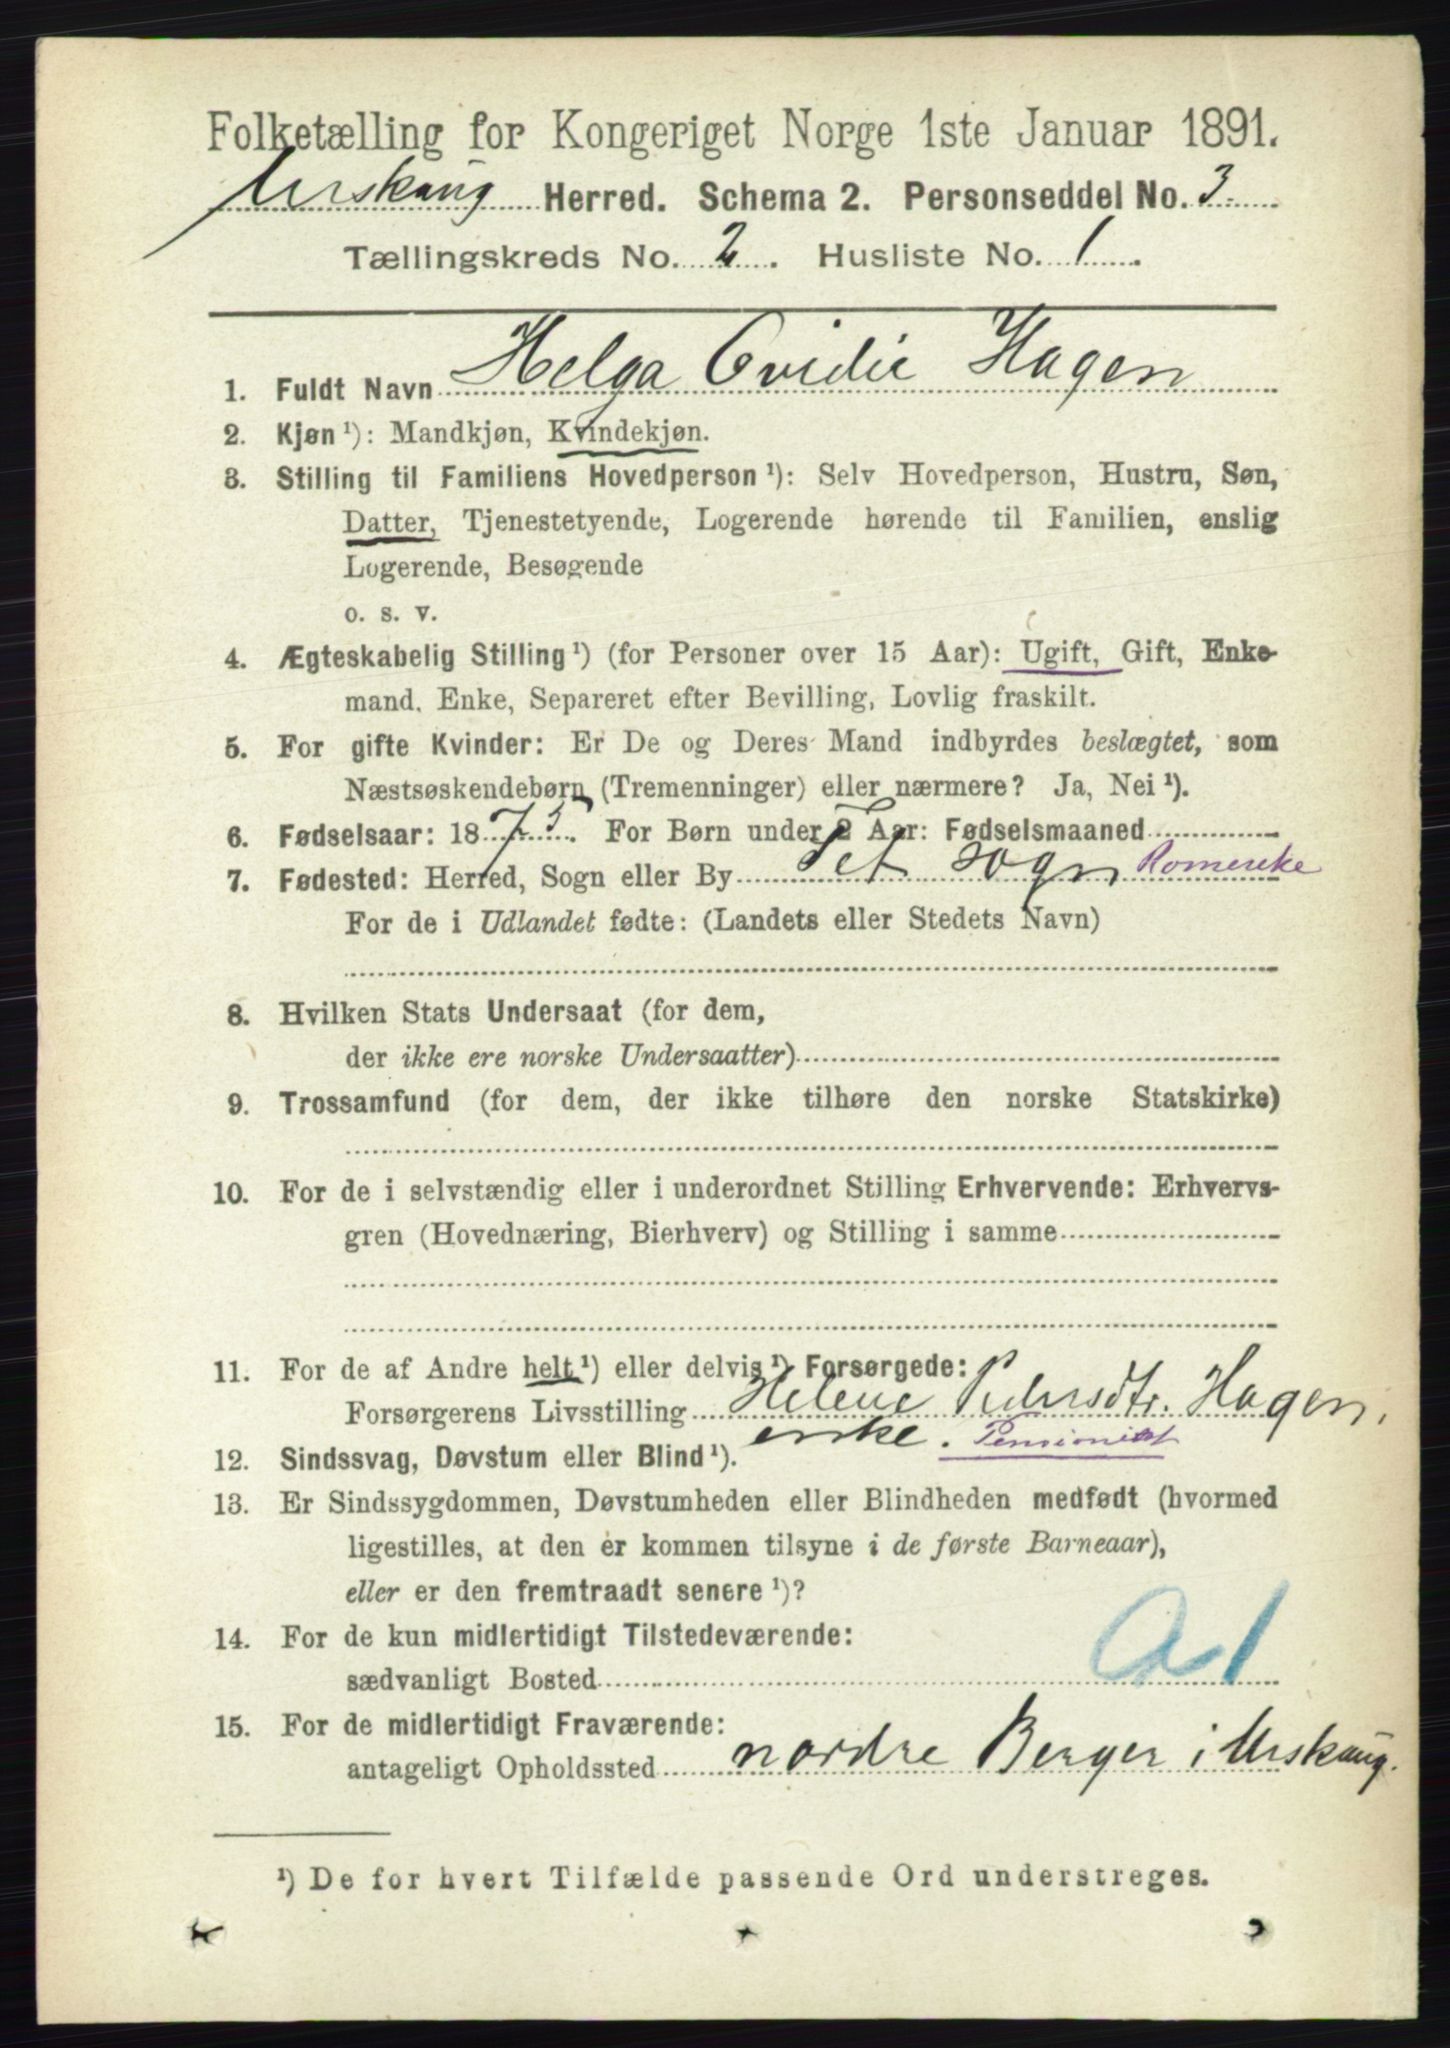 Folketælling for Kongeriget Norge 1ste Januar 1891.
Urskaug Herred. Schema 2. Personseddel No. 3
Tællingskreds No. 2. Husliste No. 1.
1. Fuldt Navn Helga Ovidie Hagen
2. Kjøn ¹): Mandkjøn, Kvindekjøn.
3. Stilling til Familiens Hovedperson ¹): Selv Hovedperson, Hustru, Søn,
Datter, Tjenestetyende, Logerende hørende til Familien, enslig
Logerende, Besøgende
o. s. v.
4. Ægteskabelig Stilling ¹) (for Personer over 15 Aar): Ugift, Gift, Enke-
mand, Enke, Separeret efter Bevilling, Lovlig fraskilt.
5. For gifte Kvinder: Er De og Deres Mand indbyrdes beslægtet, som
Næstsøskendebørn (Tremenninger) eller nærmere? Ja, Nei ¹).
6. Fødselsaar: 1875. For Børn under 2 Aar: Fødselsmaaned
7. Fødested: Herred, Sogn eller By Fet sogn Romerike
For de i Udlandet fødte: (Landets eller Stedets Navn)
8. Hvilken Stats Undersaat (for dem,
der ikke ere norske Undersaatter)
9. Trossamfund (for dem, der ikke tilhøre den norske Statskirke)
10. For de i selvstændig eller i underordnet Stilling Erhvervende: Erhvervs-
gren (Hovednæring, Bierhverv) og Stilling i samme
11. For de af Andre helt ¹) eller delvis ¹) Forsørgede:
Forsørgerens Livsstilling Helene Pedersdtr. Hagen,
enke. Pensionist
12. Sindssvag, Døvstum eller Blind ¹).
13. Er Sindssygdommen, Døvstumheden eller Blindheden medfødt (hvormed
ligestilles, at den er kommen tilsyne i de første Barneaar),
eller er den fremtraadt senere ¹)?
14. For de kun midlertidigt Tilstedeværende:
sædvanligt Bosted
15. For de midlertidigt Fraværende:
antageligt Opholdssted nordre Berger i Urskaug.
¹) De for hvert Tilfælde passende Ord understreges.